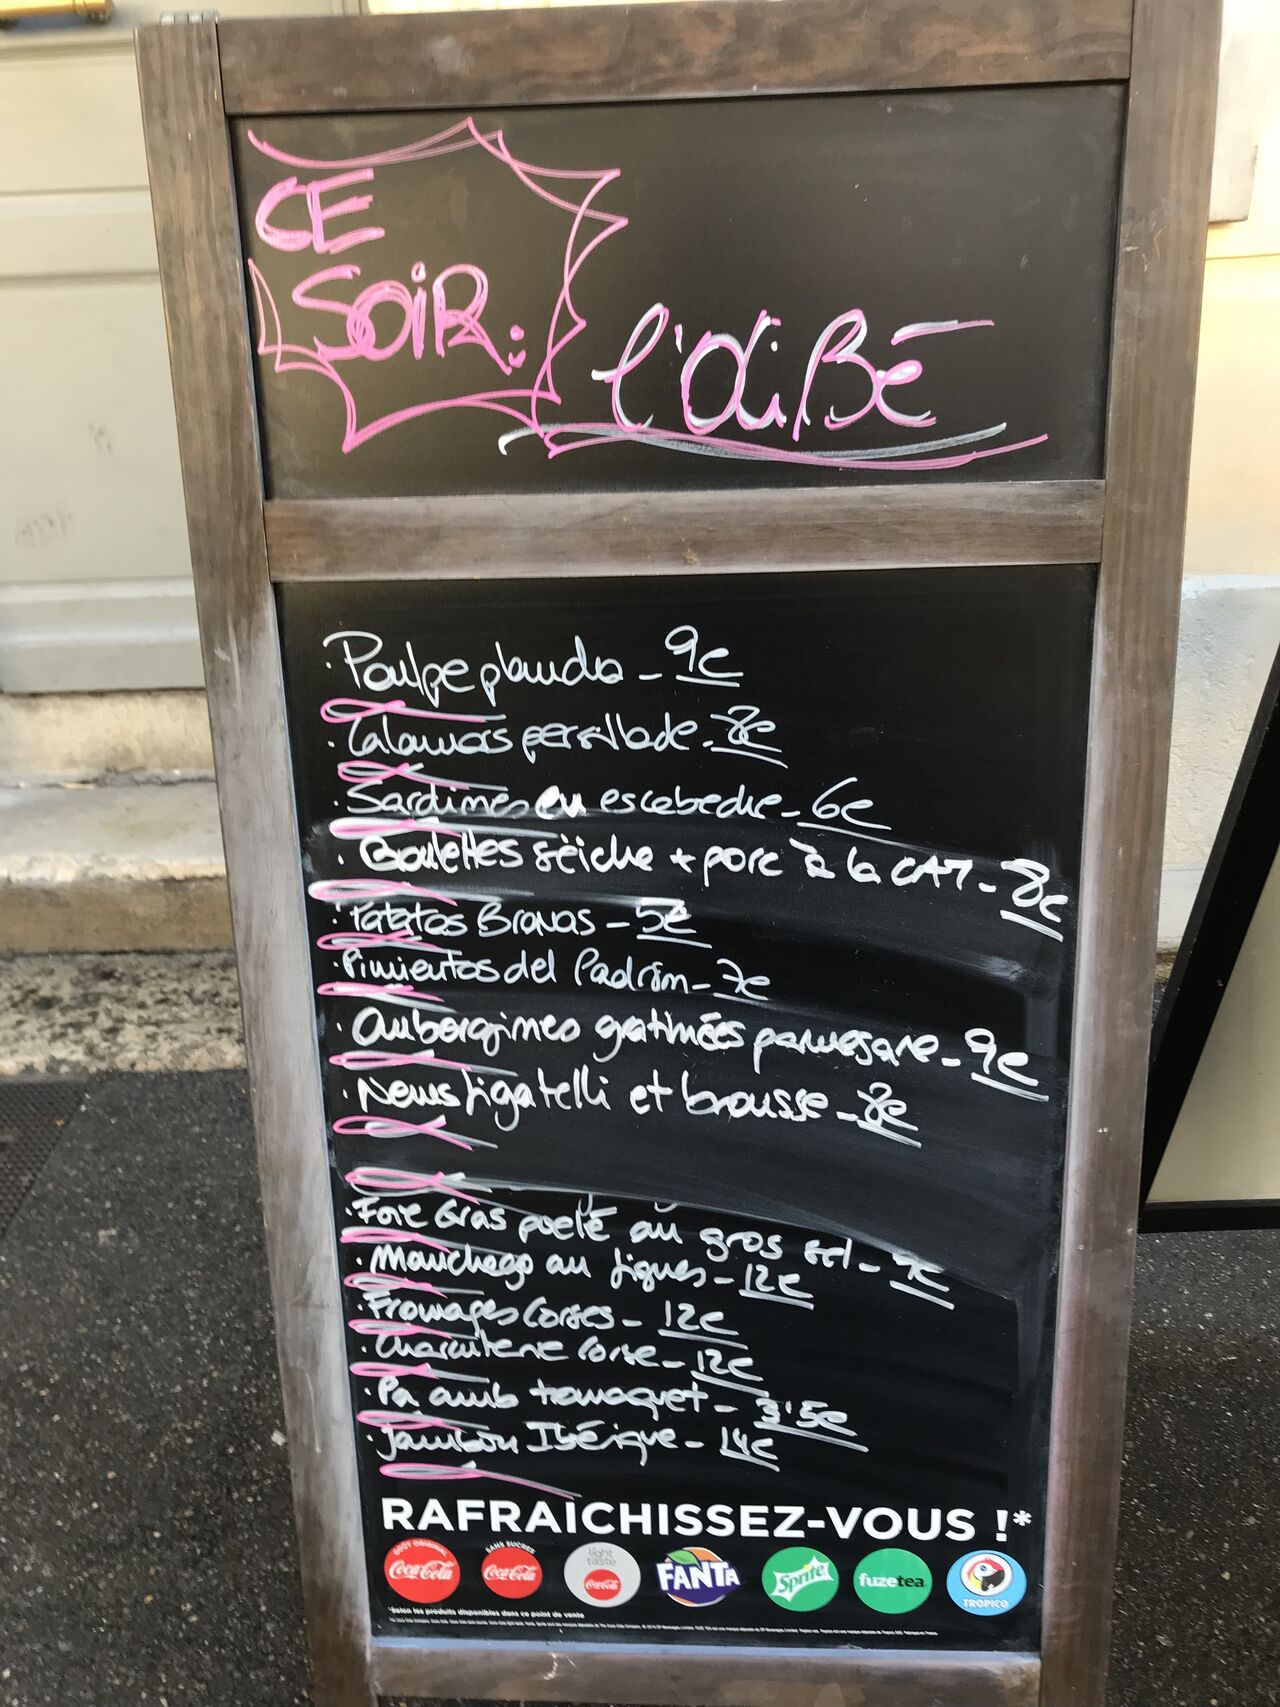 CE
SOiR:
l'OliBé
· Poulpe plancha - 9€
· Calamars persillade - 8€
· Sardines en escabeche - 6€
· Boulettes sèiche + porc à la CAT - 8€
· Patatas Bravas - 5€
· Pimientos del Padrón - 7€
· Aubergines gratinées parmesane - 9€
· Nems figatelli et brousse - 8€
· Foie Gras poelé au gros sel - 9€
· Manchego au figues - 12€
· Fromages Corses - 12€
· Charcuterie Corse - 12€
· Pa amb tomaquet - 3'5€
· Jambon Ibérique - 14€
RAFRAICHISSEZ-VOUS !*
GOÛT ORIGINAL Coca-Cola SANS SUCRES Coca-Cola light taste Coca-Cola FANTA Sprite fuzetea TROPICO
*Selon les produits disponibles dans ce point de vente